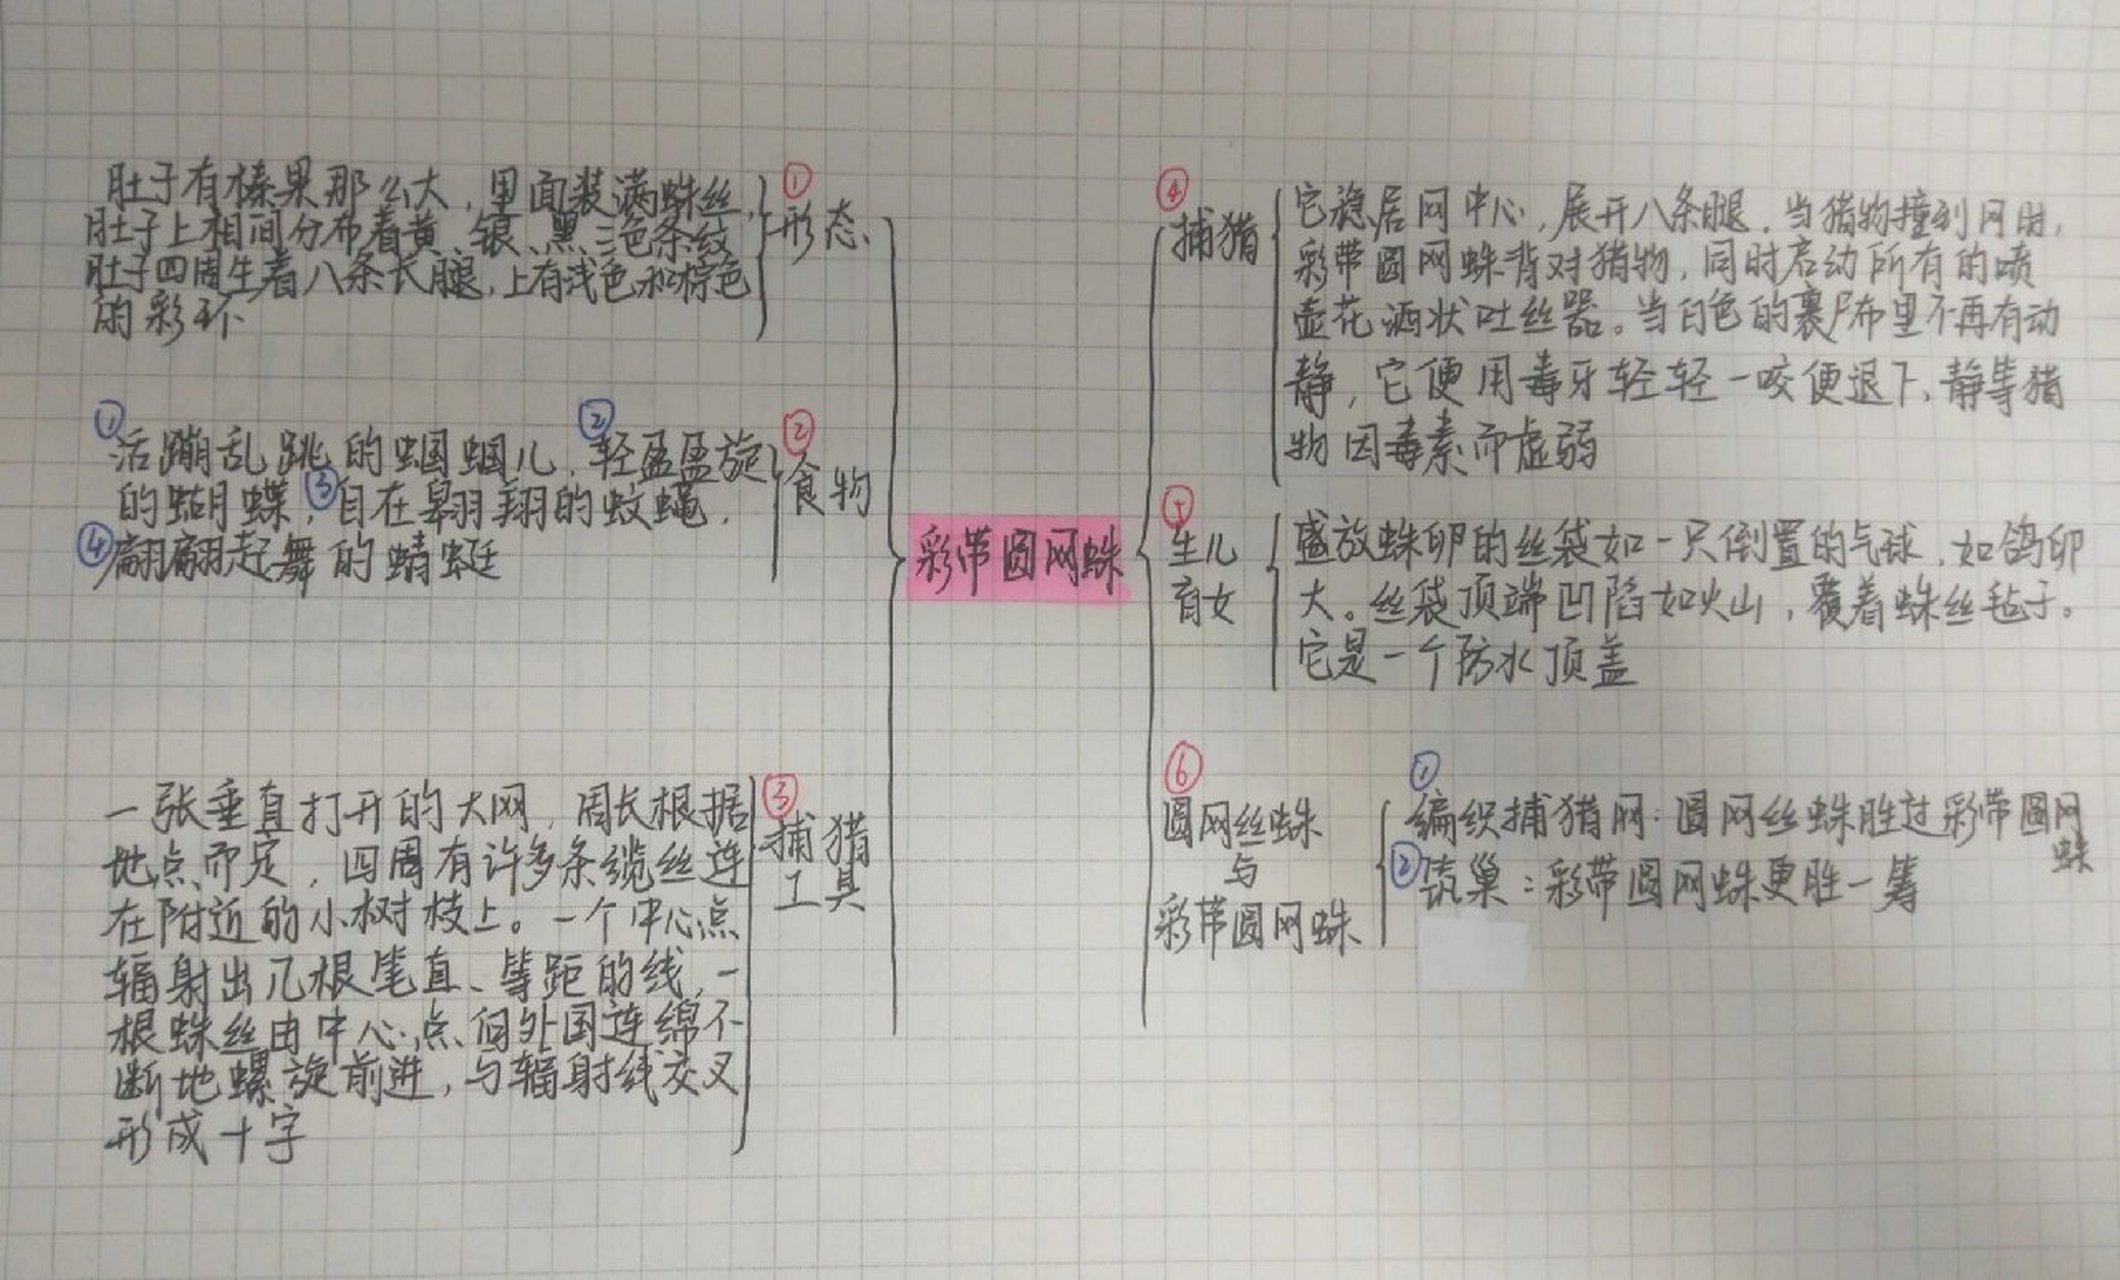 肚子有榛果那么大，里面装满蛛丝，
肚子上相间分布着黄、银、黑三色条纹
肚子四周生着八条长腿，上有浅色和棕色
的彩环
①
形态
①活蹦乱跳的蝈蝈儿，②轻盈盈旋
的蝴蝶，③自在翱翔的蚊蝇，
④翩翩起舞的蜻蜓
②
食物
一张垂直打开的大网，周长根据
地点而定，四周有许多条缆丝连
在附近的小树枝上。一个中心点
辐射出几根笔直、等距的线，一
根蛛丝由中心点向外围连绵不
断地螺旋前进，与辐射线交叉
形成十字
③
捕猎
工具
彩带圆网蛛
④
捕猎
它稳居网中心，展开八条腿。当猎物撞到网时，
彩带圆网蛛背对猎物，同时启动所有的喷
壶花洒状吐丝器。当白色的裹尸布里不再有动
静，它便用毒牙轻轻一咬便退下、静等猎
物因毒素而虚弱
⑤
生儿
育女
盛放蛛卵的丝袋如一只倒置的气球，如鸽卵
大。丝袋顶端凹陷如火山，覆着蛛丝毡子。
它是一个防水顶盖
⑥
圆网丝蛛
与
彩带圆网蛛
①
编织捕猎网：圆网丝蛛胜过彩带圆网
蛛
②筑巢：彩带圆网蛛更胜一筹